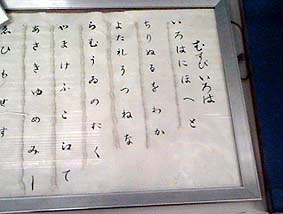 むすびいろは
いろはにほへと
ちりぬるをわか
よたれそつねな
らむうゐのおく
やまけふこえて
あさきゆめみし
ゑひもせす